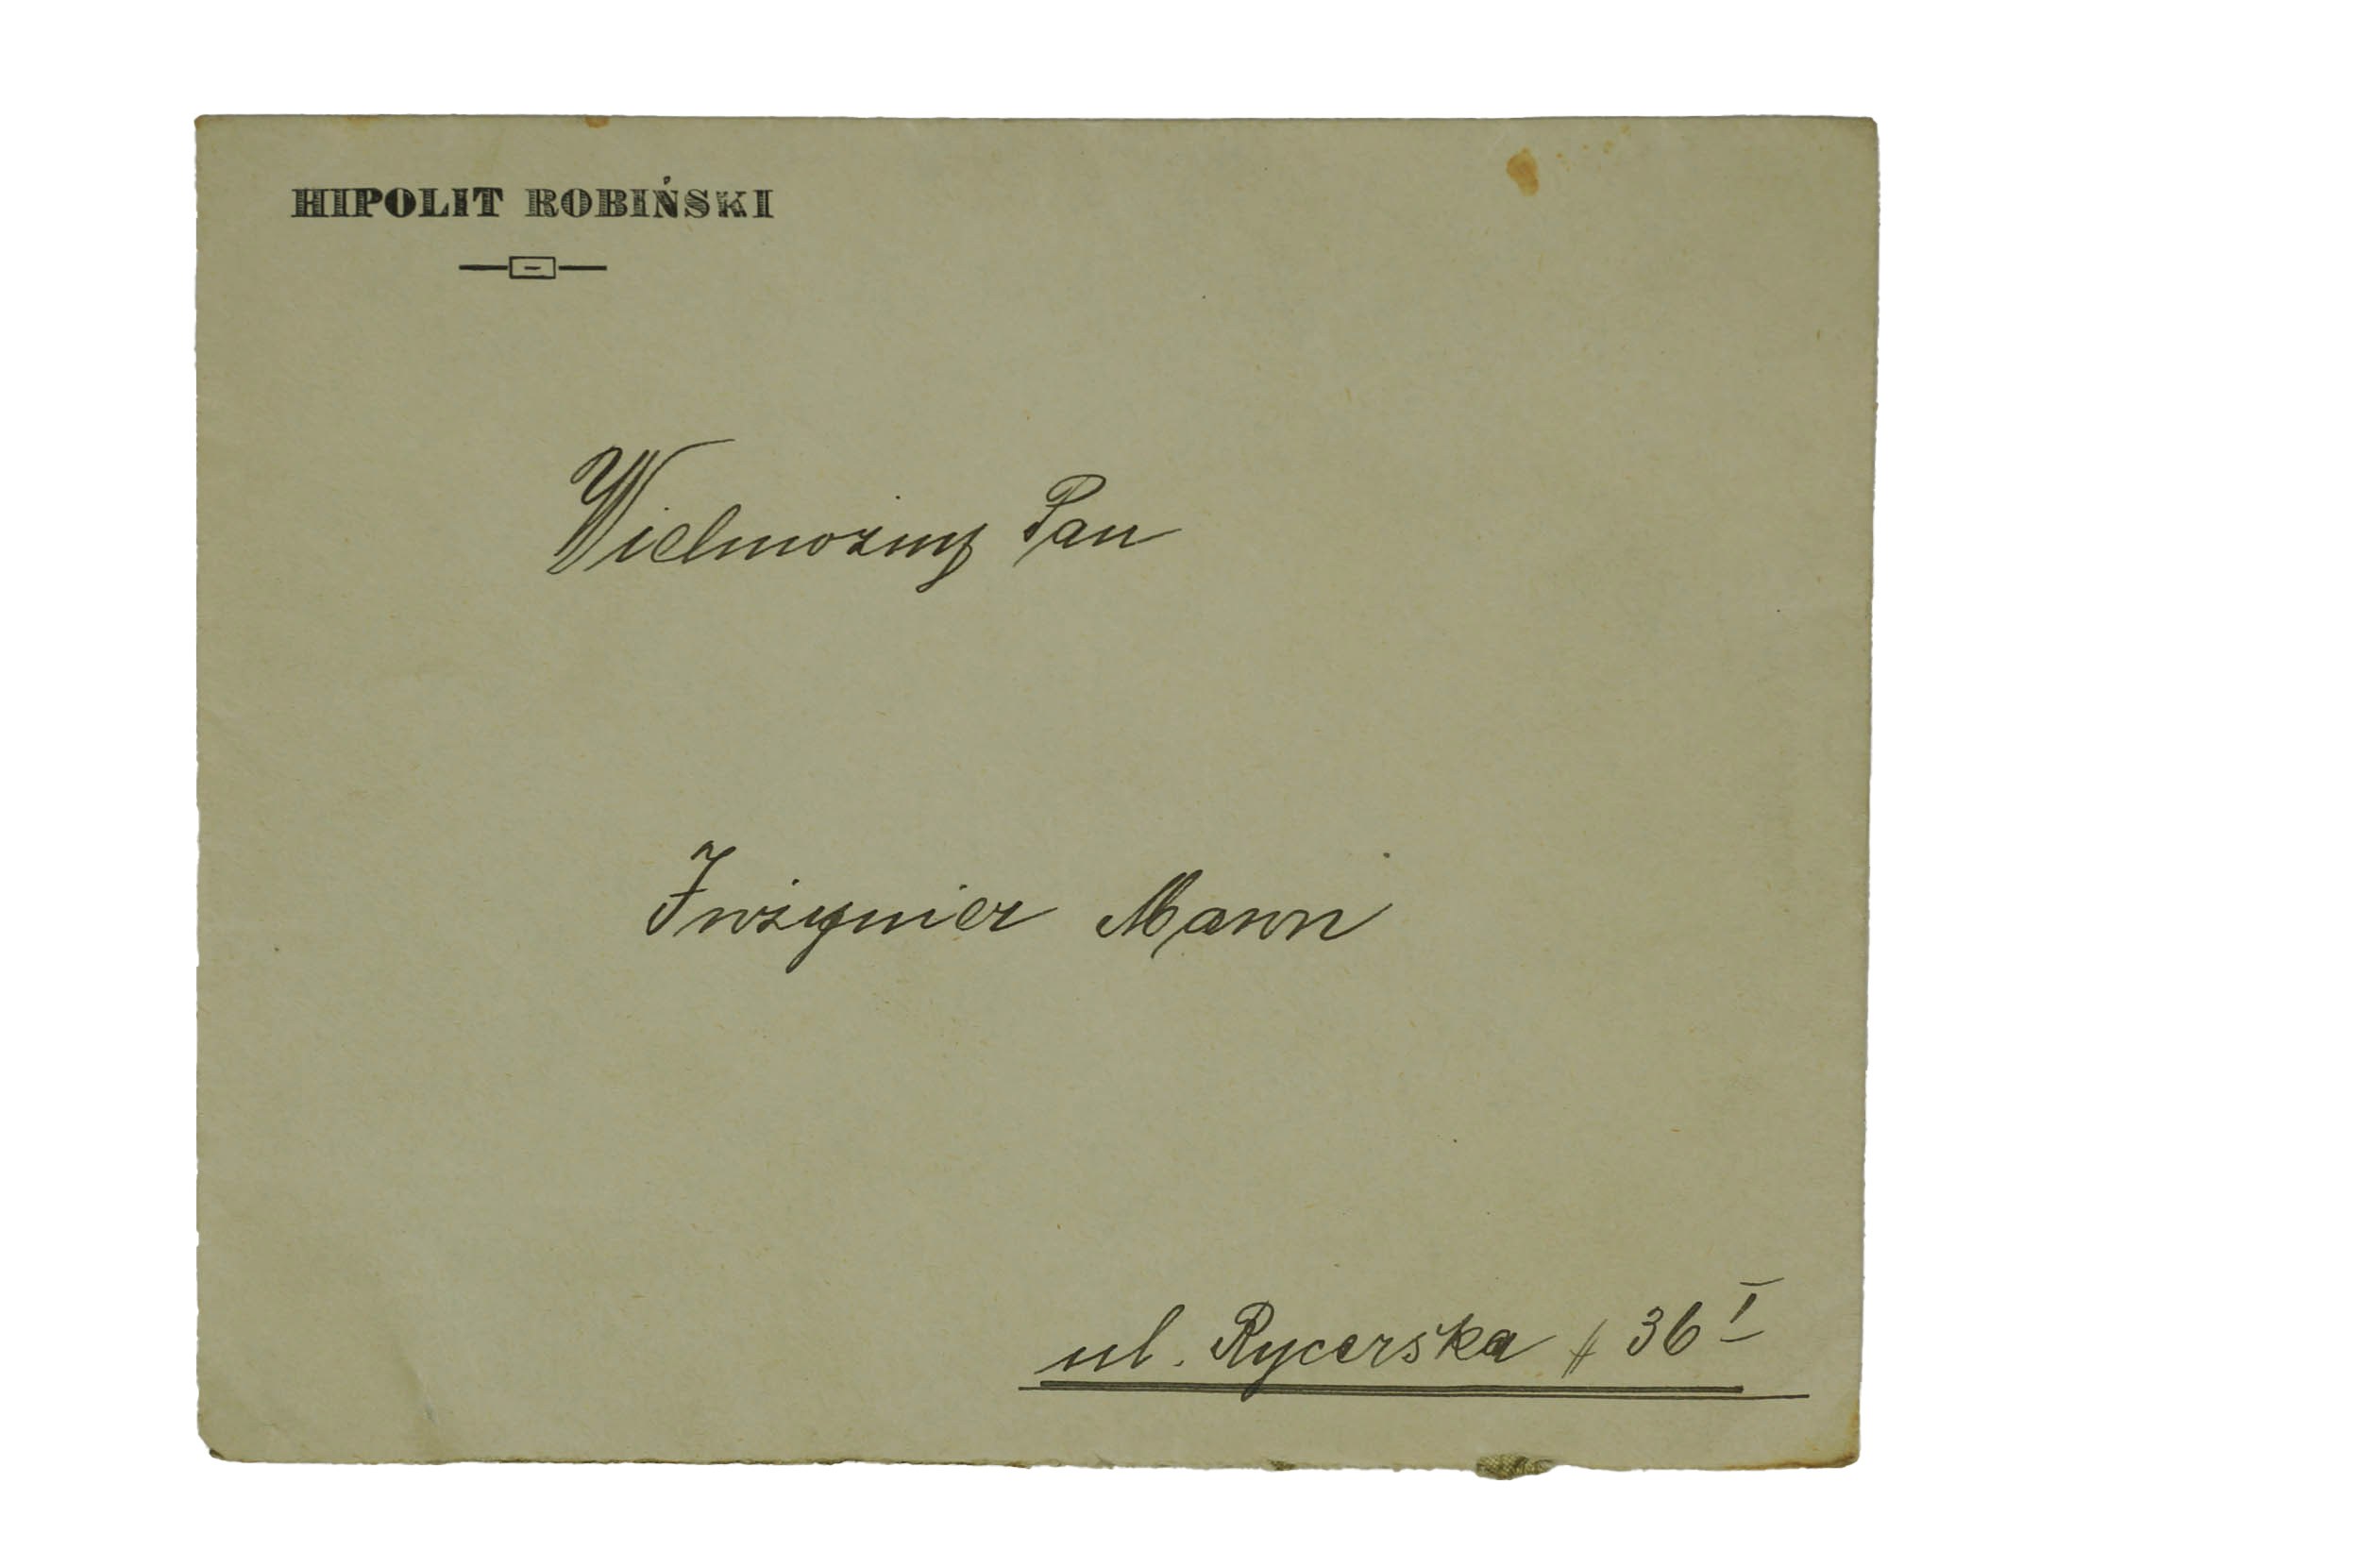 HIPOLIT ROBIŃSKI
Wielmożny Pan
Inżynier Mann
ul. Rycerska # 36 I